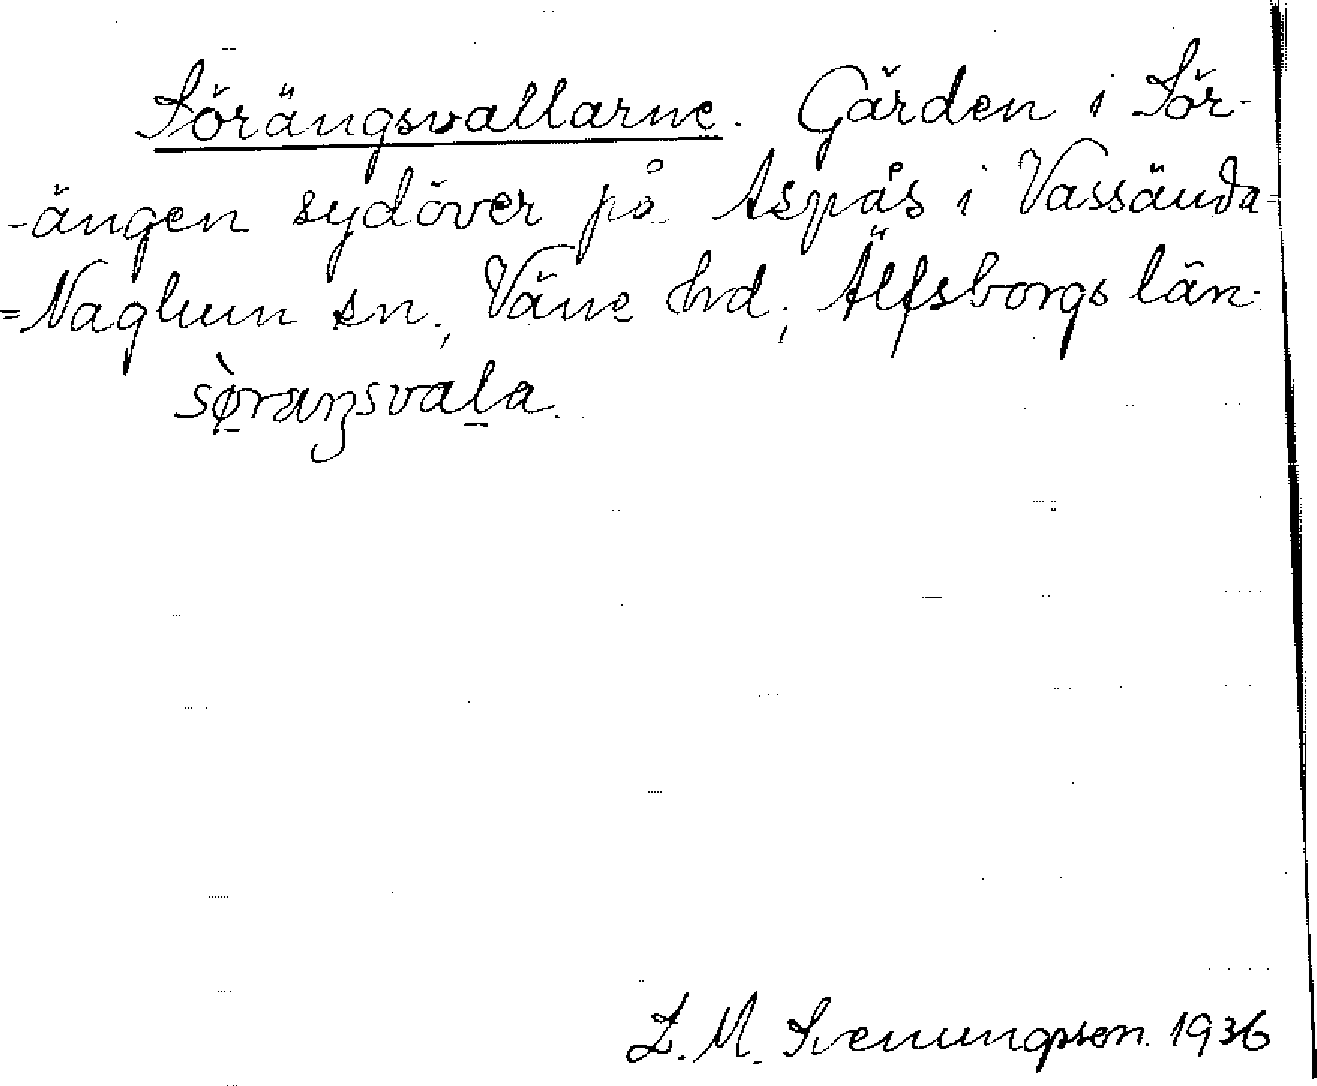 Sörängsvallarne. Gården i Sör-
-ängen sydöver på Aspås i Vassända=
=Naglum sn., Väne hd., Älfsborgs län.
sø̀raŋsvala.
L. M. Svenungsson. 1936